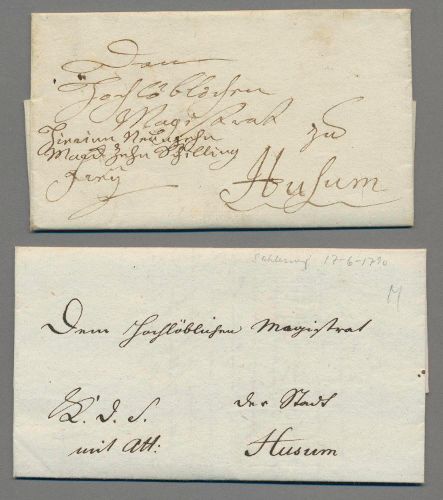 Dem
Hochlöblichen
Magistrat
Hierinn Neunzehn
Marck Zehn Schilling
frey
zu
Husum
Schleswig 17-6-1790
M
Dem Hochlöblichen Magistrat
K. D. S.
der Stadt
mit Att:
Husum